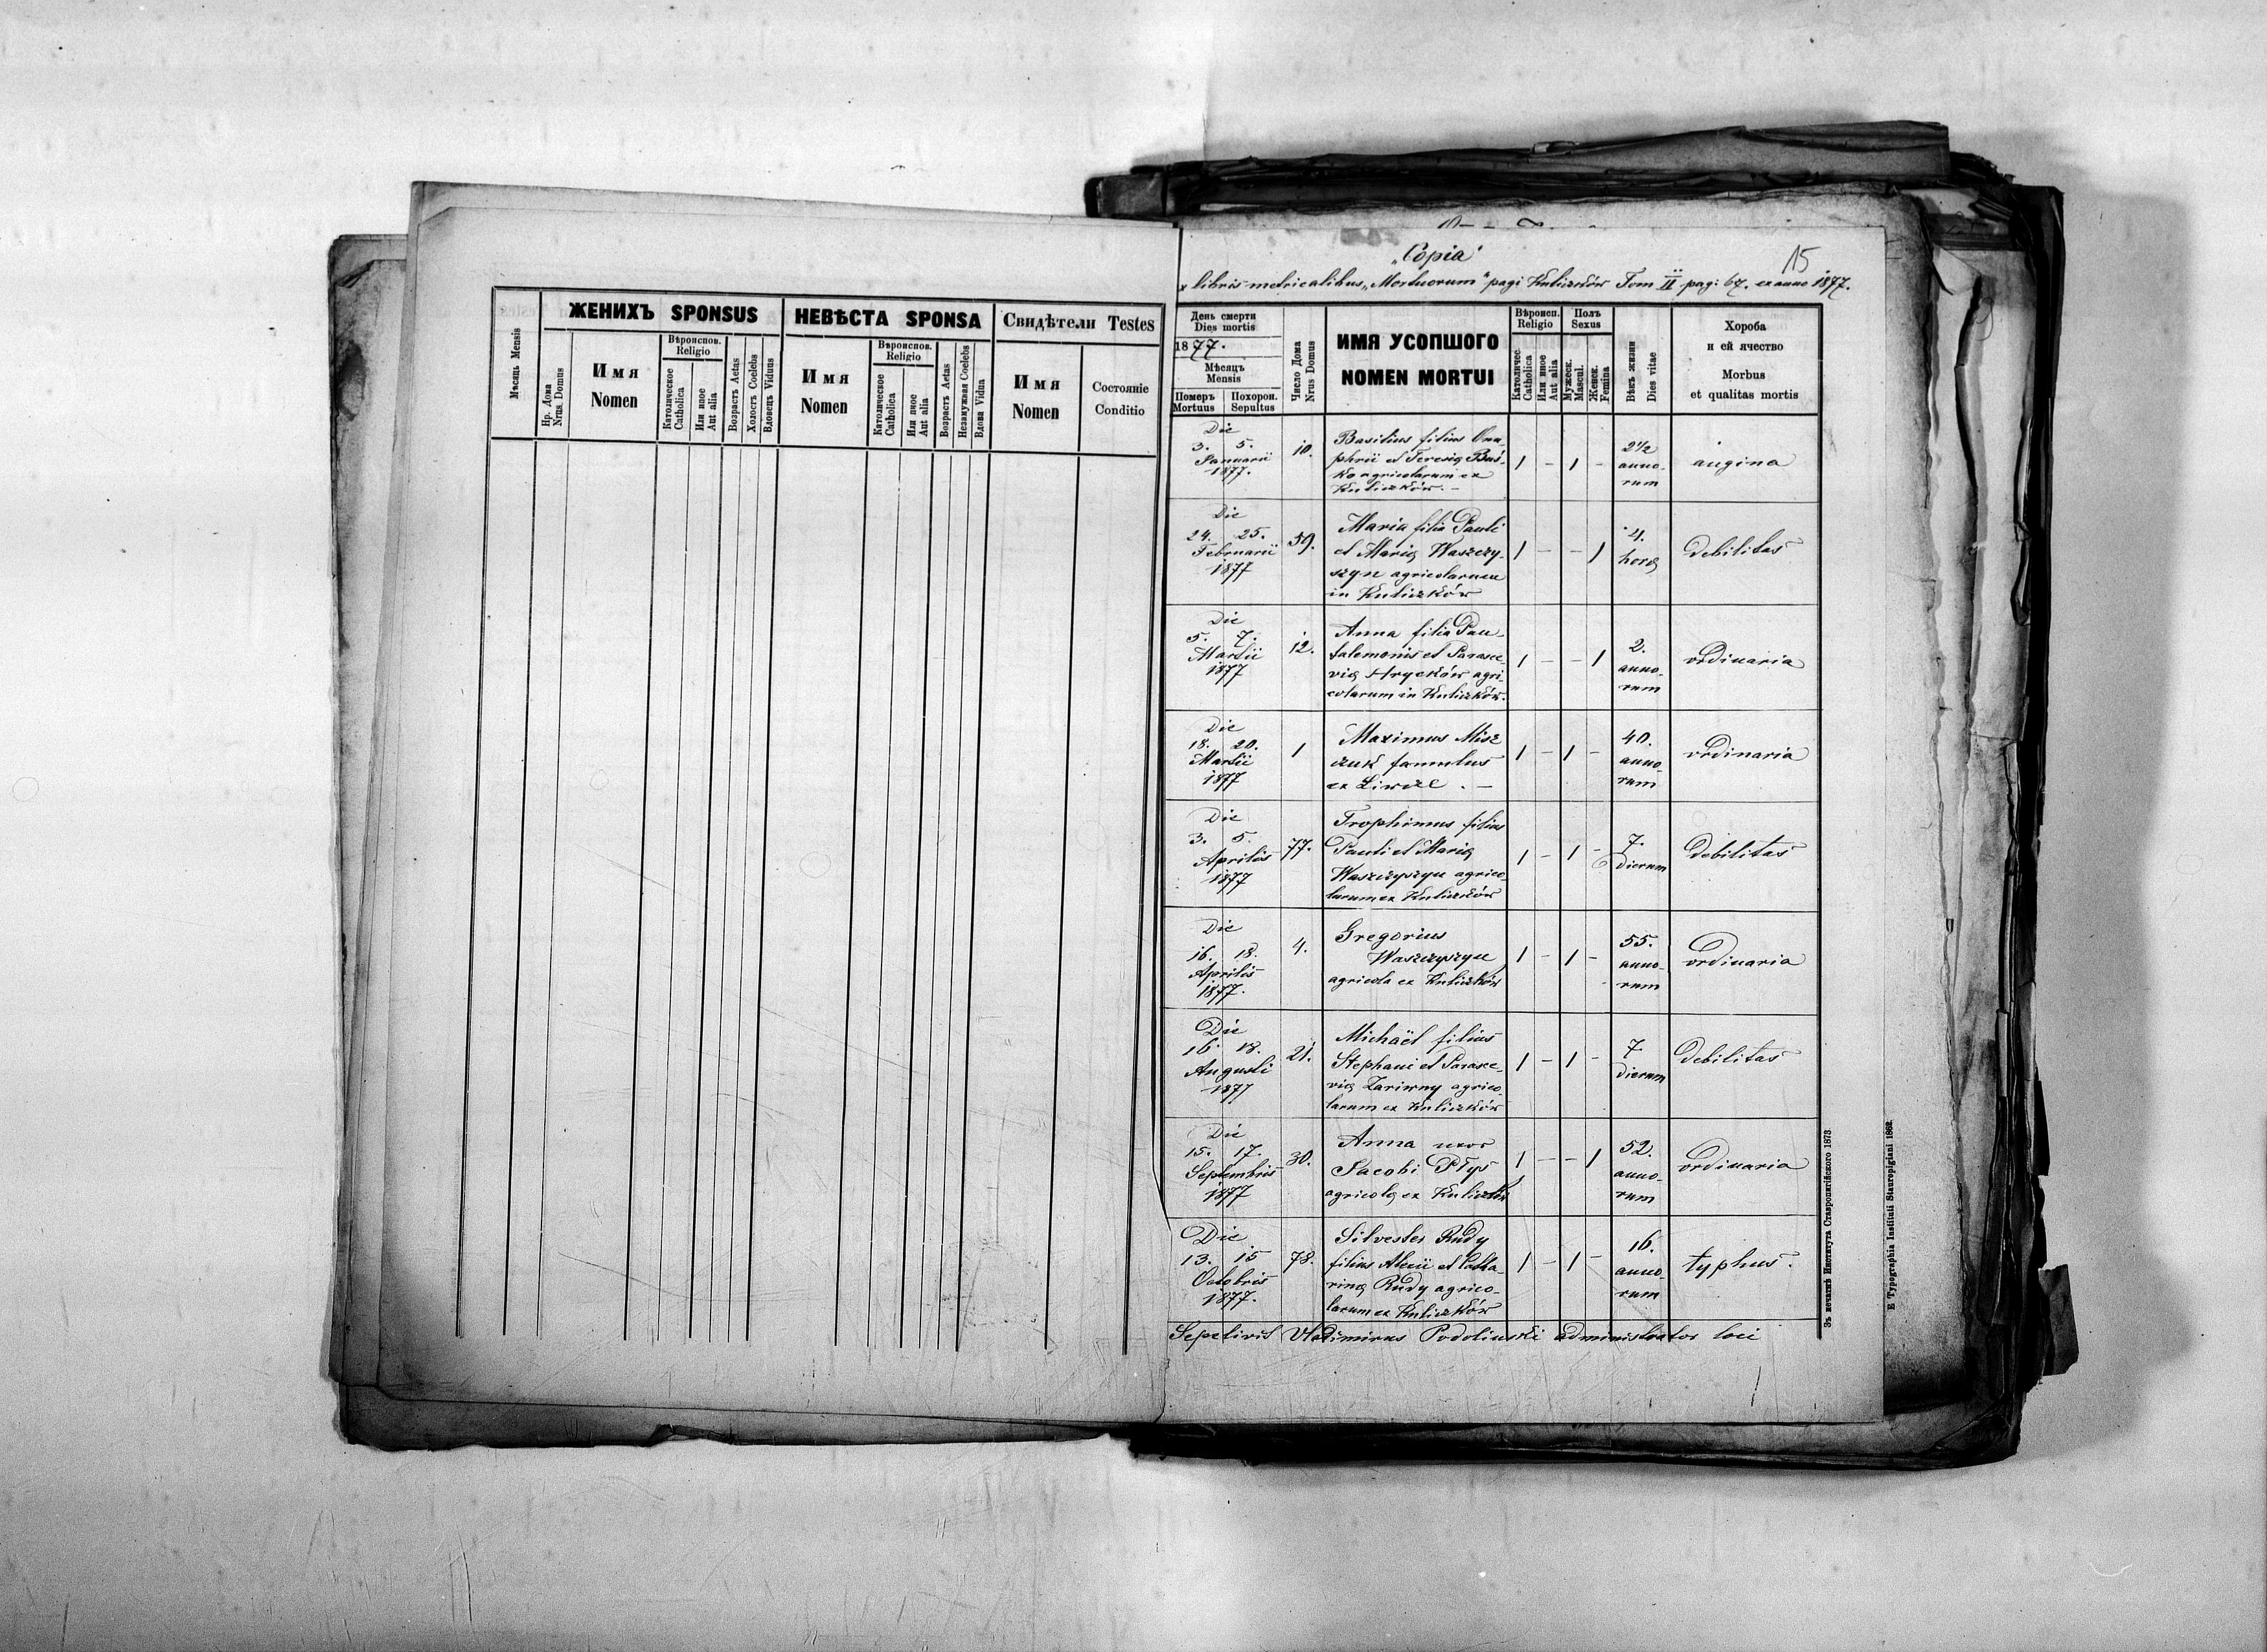 ЖЕНИХЪ SPONSUS
НЕВѢСТА SPONSA
Свидѣтели Testes
Мѣсяць Mensis
Нр. Дома
Nrus. Domus
Имя
Nomen
Вѣроиспов.
Religio
Католическое
Catholica
Или иное
Aut alia
Возрастъ Aetas
Холостъ Coelebs
Вдовець Viduus
Имя
Nomen
Вѣроиспов.
Religio
Католическое
Catholica
Или иное
Aut alia
Возрастъ Aetas
Незамужная Coelebs
Вдова Vidua
Имя
Nomen
Состоянiе
Conditio
„Copia"
15
libris metricalibus „Mortuorum" pagi Kuliczków Tom II pag: 67. ex anno 1877.
День смерти
Dies mortis
1877.
Мѣсяць
Mensis
Померъ
Mortuus
Похорон.
Sepultus
Число Дома
Nrus Domus
ИМЯ УСОПШОГО
NOMEN MORTUI
Вѣроисп.
Religio
Католичес.
Catholica
Или иное
Aut alia
Полъ
Sexus
Мужеск.
Mascul.
Женск.
Femina
Вѣкъ жизни
Dies vitae
Хороба
и ей ячество
Morbus
et qualitas mortis
Die
3. 5.
Januarii
1877.
10.
Basilius filius Onu-
phrii et Teresię Buś-
ko agricolarum ex
Kuliczków. –
1 – 1 –
2 1/2
anno-
rum
angina
Die
24. 25.
Februarii
1877
59.
Maria filia Pauli
et Marię Waszczy-
szyn agricolarum
in Kuliczków
1 – – 1
4.
horę
debilitas
Die
5. 7.
Martii
1877
12.
Anna filia Pan-
talemonis et Parasce-
vię Hryćków agri-
colarum in Kuliczków.
1 – – 1
2.
anno-
rum
ordinaria
Die
18. 20.
Martii
1877
1
Maximus Misz
czuk famulus
ex Liwcze . –
1 – 1 –
40.
anno-
rum
ordinaria
Die
3. 5.
Aprilis
1877
77.
Trophimus filius
Pauli et Marię
Waszczyszyn agrico-
larum ex Kuliczków
1 – 1 –
7.
dierum
debilitas
Die
16. 18.
Aprilis
1877.
4.
Gregorius
Waszczyszyn
agricola ex Kuliczków
1 – 1 –
55.
anno-
rum
ordinaria
Die
16. 18.
Augusti
1877
21.
Michaël filius
Stephani et Parasce-
vię Zariwny agrico-
larum ex Kuliczków
1 – 1 –
7
dierum
debilitas
Die
15. 17.
Septembris
1877
30.
Anna uxor
Jacobi Ptyś
agricolę ex Kuliczków
1 – – 1
52.
anno-
rum
ordinaria
Die
13. 15
Octobris
1877.
78.
Silvester Rudy
filius Alexii et Catha-
rinę Rudy agrico-
larum ex Kuliczków
1 – 1 –
16.
anno-
rum
typhus.
Sepelivit Vladimirus Podoliński administrator loci
Зъ печатнѣ Института Ставропигійского 1873.
E Typographia Instituti Stauropigiani 1862.